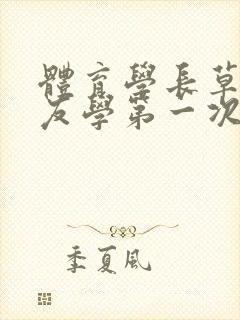 體育學長草
友學第一次
季夏風